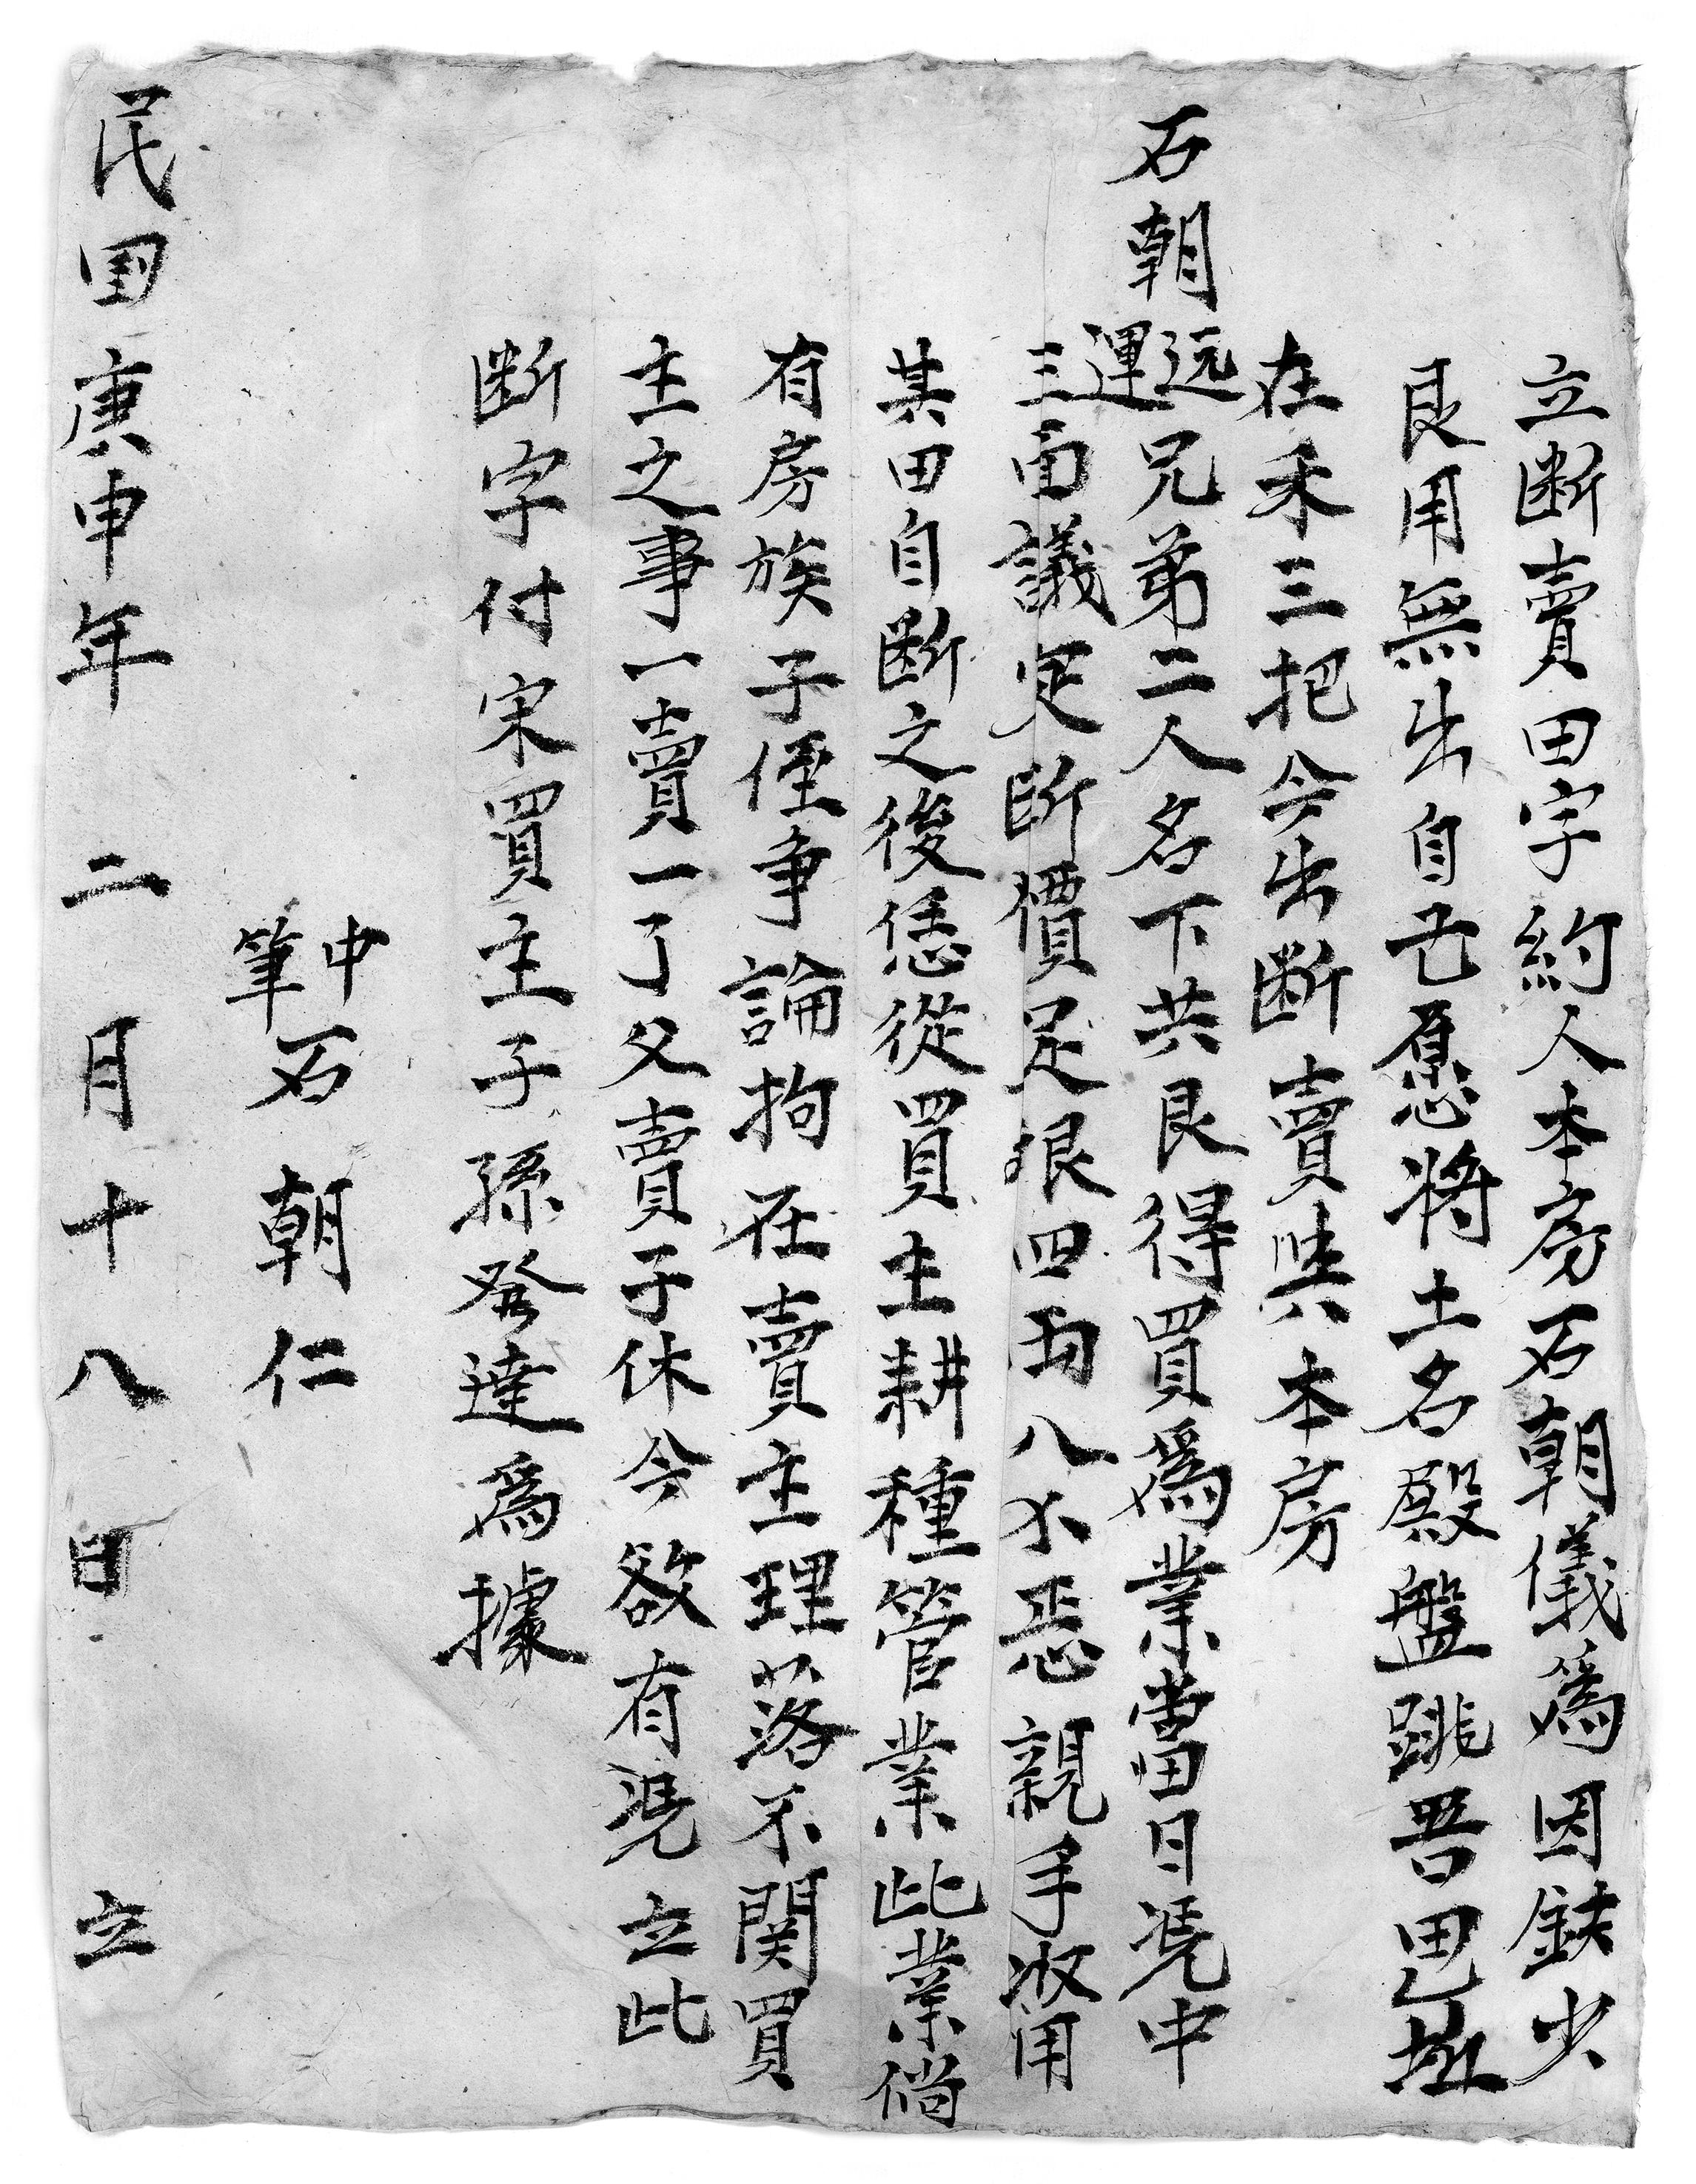 立断賣田字約人本房石朝儀為因缺少
艮用無出自己愿将土名殿盤跳
在禾三把今出断賣與本房
石朝远運兄弟二人名下共艮得買為業當日凴中
三面議定断價足银四両八不悪親手収用
其田自断之後恁從買主耕種管業此業倘
有房族子侄争論拘在賣主理落不関買
主之事一賣一了父賣子休今欲有凴立此
断字付宋買主子孫發達為據
中筆石朝仁
民国庚申年二月十八日立